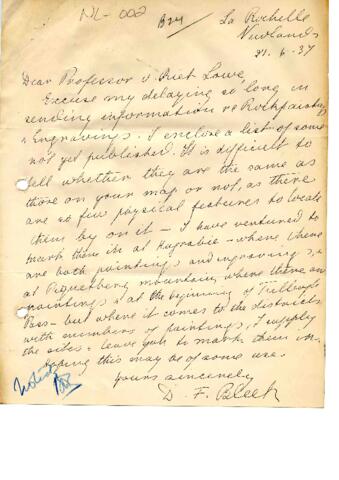 NL-002
B24
La Rochelle
Newlands
21. 6. 37
Dear Professor v. Riet Lowe,
Excuse my delaying so long in
sending information re Rockpaintings
& Engravings. I enclose a list of some
not yet published. It is difficult to
tell whether they are the same as
those on your map or not, as there
are so few physical features to locate
them by on it — I have ventured to
mark them in at Kagrabie — where there
are both paintings and engravings, &
at Piquetberg mountain, where there are
paintings & at the beginning of Tulbagh
Pass — but where it comes to the districts
with numbers of paintings, I supply
the sites & leave you to mark them in.
Hoping this may be of some use.
Yours sincerely,
D. F. Bleek
Noted